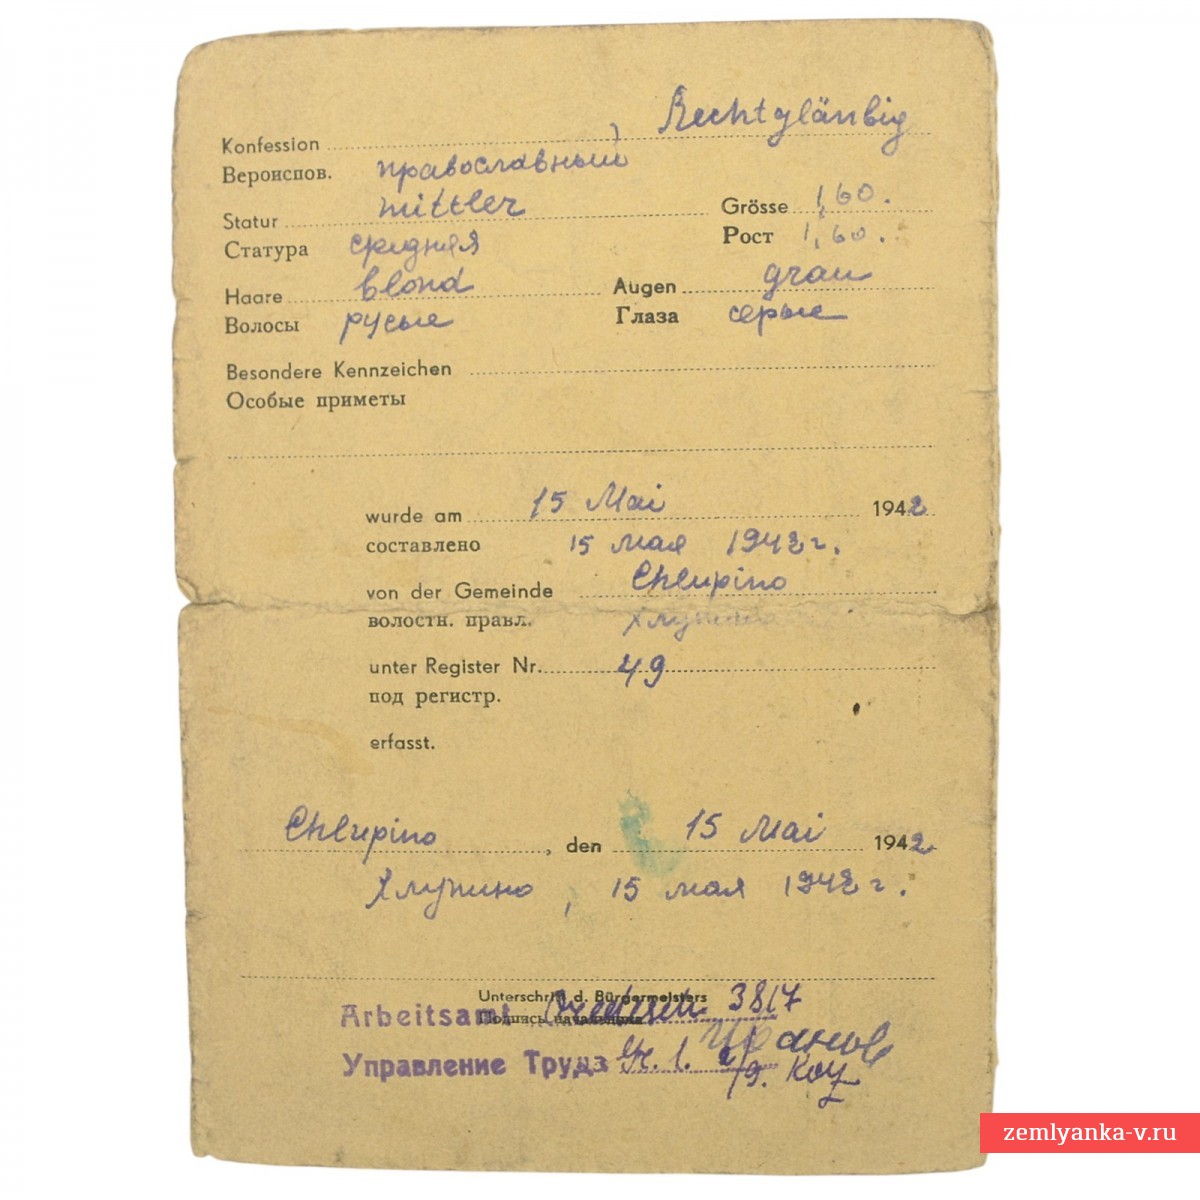 Konfession , Rechtgläubig
Вероиспов. православный
Statur mittler Grösse 1,60.
Статура средняя Рост 1,60.
Haare blond Augen grau
Волосы русые Глаза серые
Besondere Kennzeichen
Особые приметы
wurde am 15 Mai 1942
составлено 15 мая 1942 г.
von der Gemeinde Chlupino
волостн. правл. Хлупино
unter Register Nr. 49
под регистр.
erfasst.
Chlupino, den 15 Mai 1942.
Хлупино, 15 мая 1942 г.
Unterschrift d. Bürgermeisters
Подпись начальника
Arbeitsamt 3817
Управление Труда
zemlyanka-v.ru